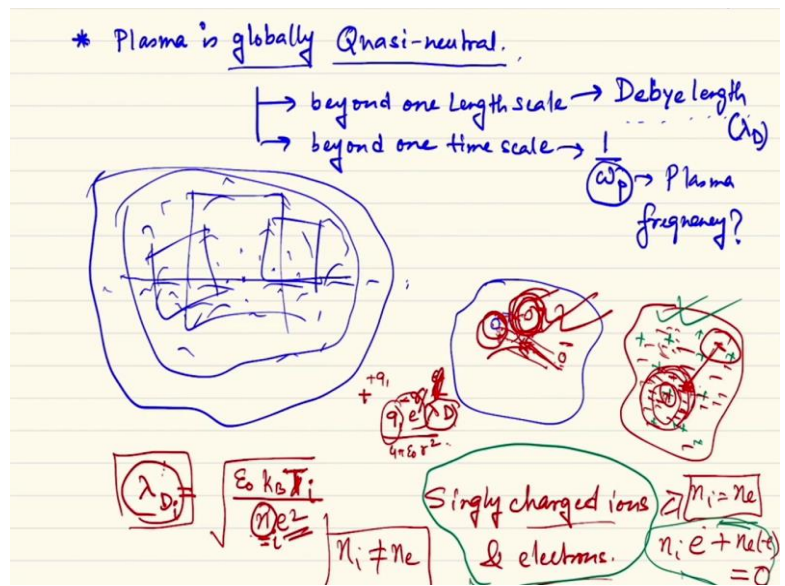 * Plasma is globally Quasi-neutral.
→ beyond one Length scale → Debye length
(λ_D)
→ beyond one time scale → 1/ω_p → Plasma
frequency?
+q₁
q e^(-r/λD)
4πε₀r²
λ_Di = √(ε₀ k_B T_i / n_i e²)
n_i ≠ n_e
Singly charged ions
& electrons.
n_i = n_e
n_i e + n_e(-e)
= 0